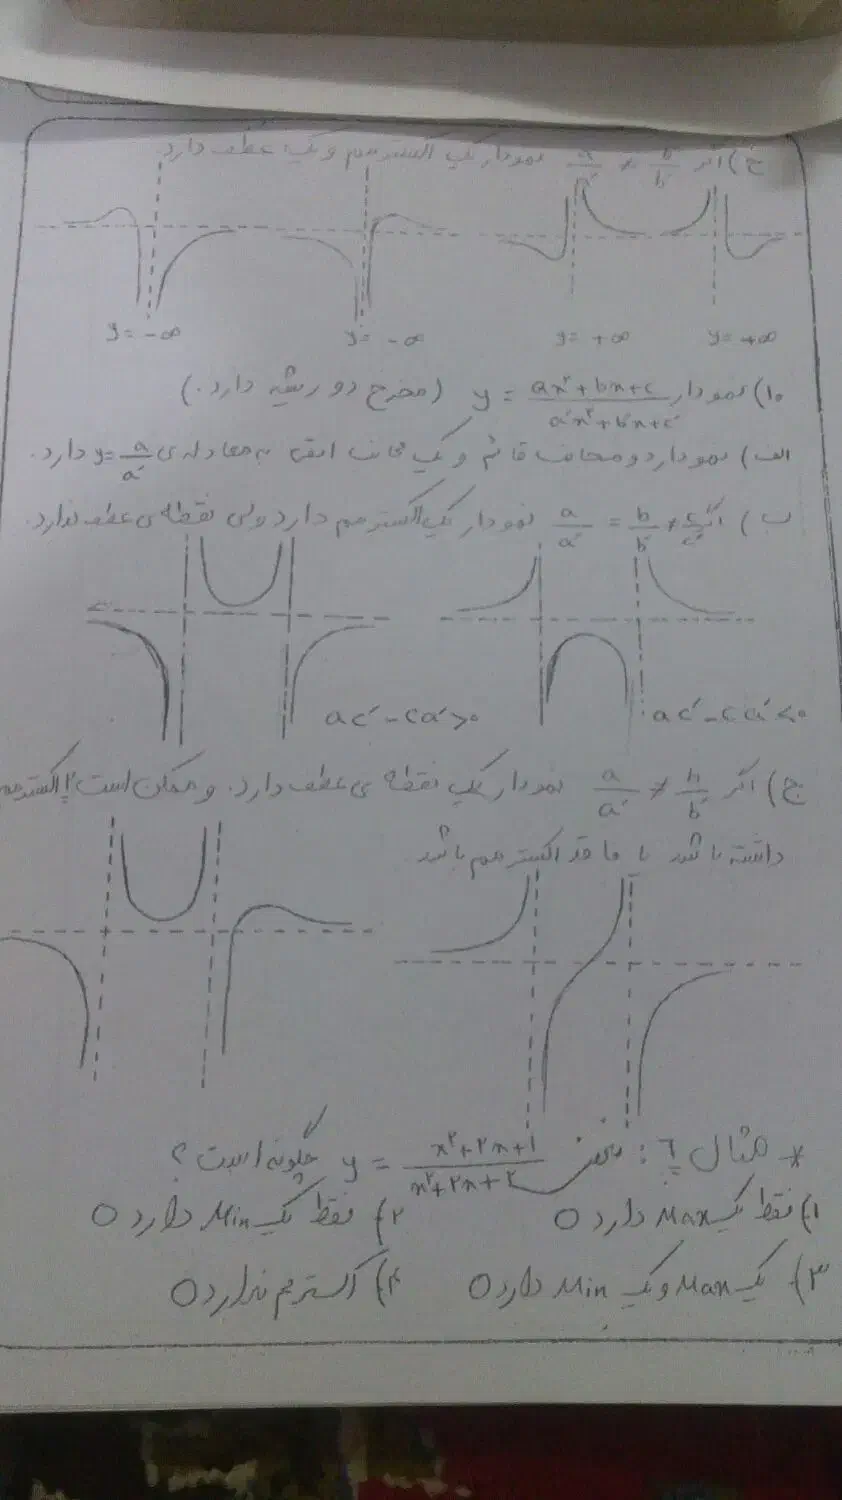 ج) اگر a/a' ≠ b/b' نمودار یک اکسترمم و یک عطف دارد.
y = -∞ y = -∞ y = +∞ y = +∞
۱۰) نمودار y = (ax²+bx+c)/(a'x²+b'x+c') (مخرج دو ریشه دارد.)
الف) نمودار دو مجانب قائم و یک مجانب افقی به معادله ی y = a/a' دارد.
ب) اگر a/a' = b/b' ≠ c/c' نمودار یک اکسترمم دارد ولی نقطه ی عطف ندارد.
ac' - ca' > ۰ ac' - ca' < ۰
ج) اگر a/a' ≠ b/b' نمودار یک نقطه ی عطف دارد. و ممکن است ۲ اکسترمم
داشته باشد یا فاقد اکسترمم باشد
* مثال ۶: منحنی y = (x²+۲x+۱)/(x²+۲x+۲) چگونه است؟
۱) فقط یک Max دارد ○ ۲) فقط یک Min دارد ○
۳) یک Max و یک Min دارد ○ ۴) اکسترمم ندارد ○